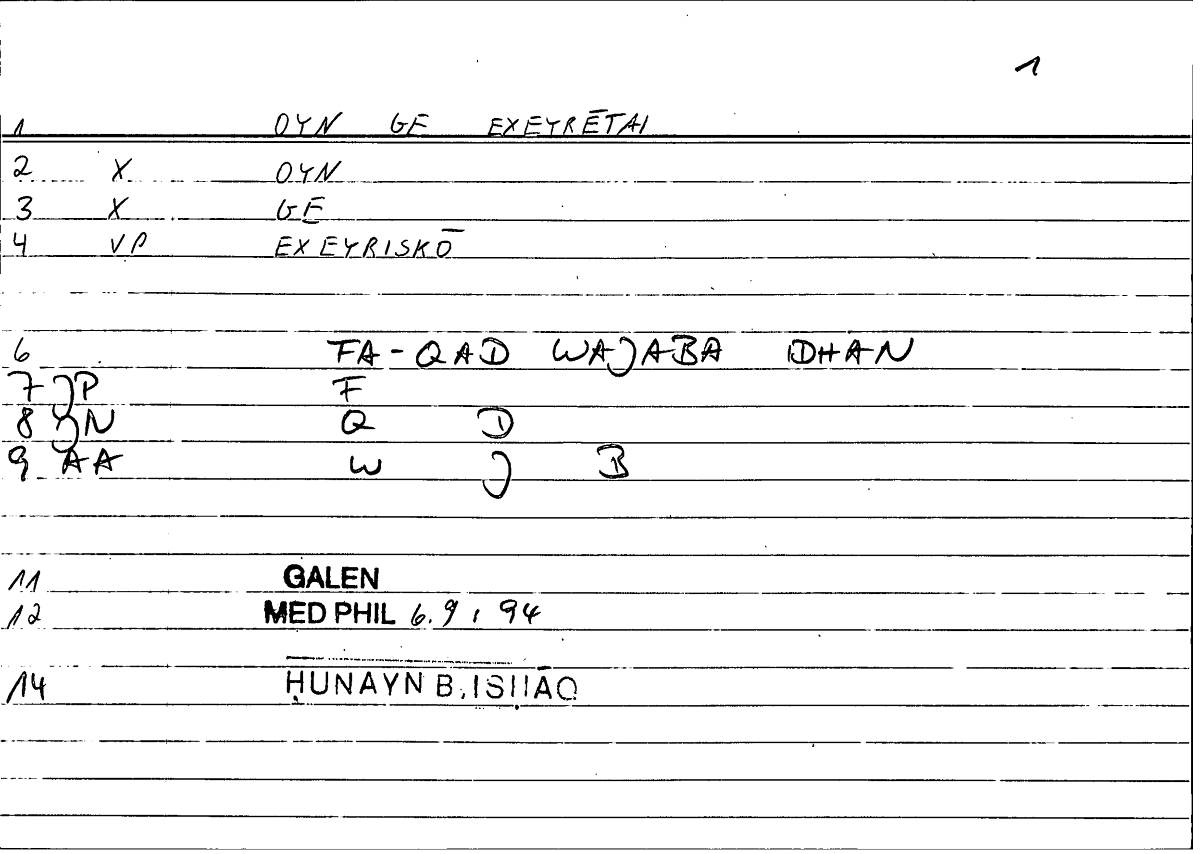 1
1 OYN GE EXEYRĒTAI
2 X OYN
3 X GE
4 VP EXEYRISKŌ
6 FA-QAD WAJABA IDHAN
7 JP F
8 YN Q D
9 AA W J B
11 GALEN
12 MED PHIL 6.9, 94
14 ḤUNAYN B. ISḤĀQ